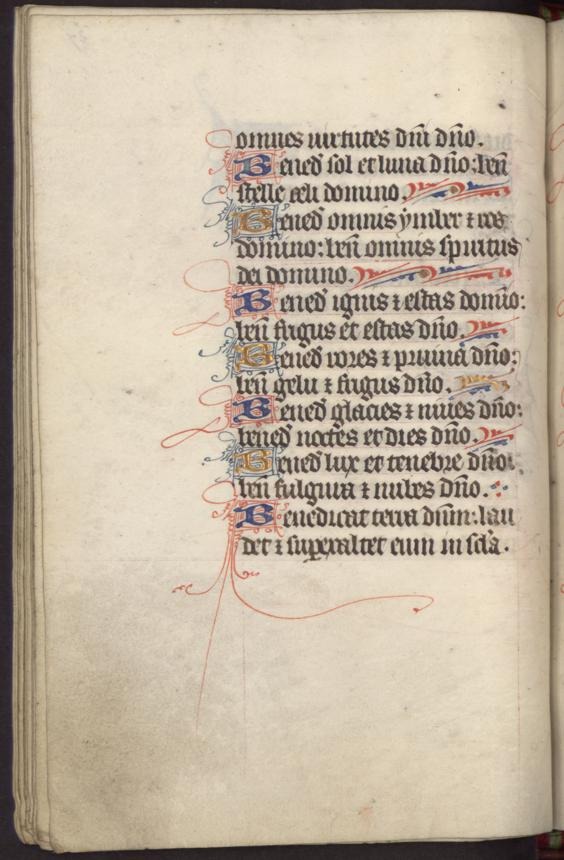 omnes uirtutes dñi dño.
Bened sol et luna dño: beñ
stelle celi domino.
Bened omnis ymber ⁊ ros
domino: beñ omnis spiritus
dei domino.
Bened ignis ⁊ estas domio:
beñ frigus et estas dño.
Bened rores ⁊ pruina dño:
beñ gelu ⁊ frigus dño.
Bened glacies ⁊ niues dño:
bened noctes et dies dño.
Bened lux et tenebre dño:
beñ fulgura ⁊ nubes dño.
Benedicat terra dñm: lau
det ⁊ superaltet eum in scla.